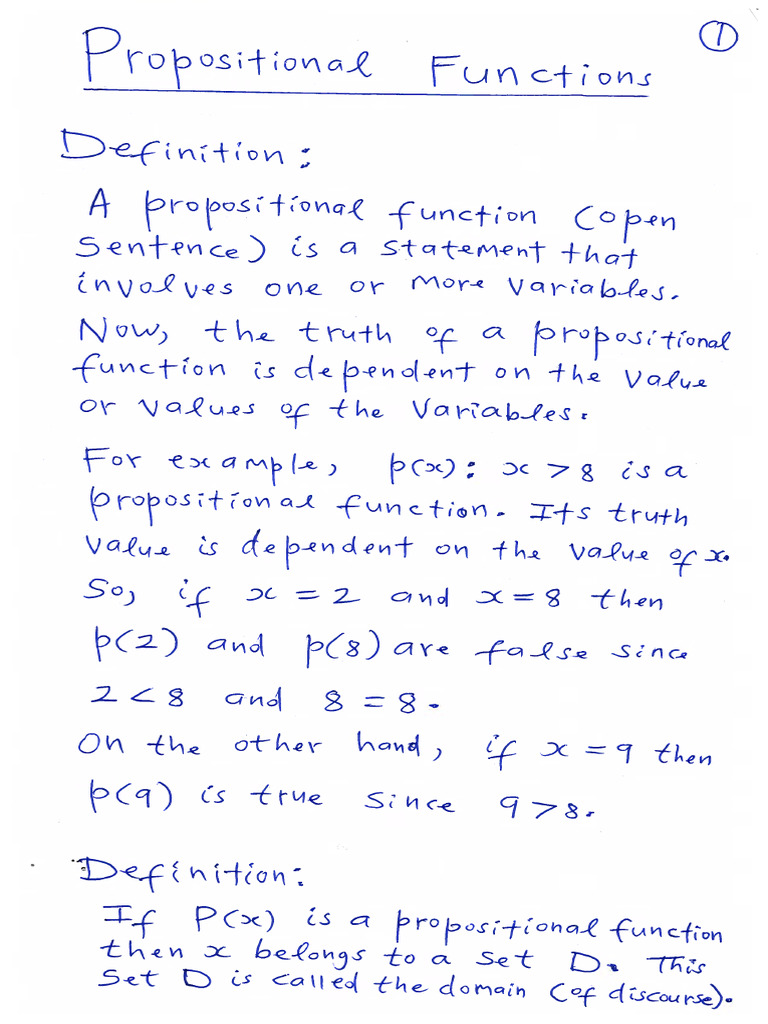 1
Propositional Functions
Definition:
A propositional function (open
Sentence) is a statement that
involves one or more variables.
Now, the truth of a propositional
function is dependent on the value
or values of the variables.
For example, p(x): x > 8 is a
propositional function. Its truth
value is dependent on the value of x.
So, if x = 2 and x = 8 then
p(2) and p(8) are false since
2 < 8 and 8 = 8.
On the other hand, if x = 9 then
p(9) is true since 9 > 8.
Definition:
If P(x) is a propositional function
then x belongs to a set D. This
Set D is called the domain (of discourse).